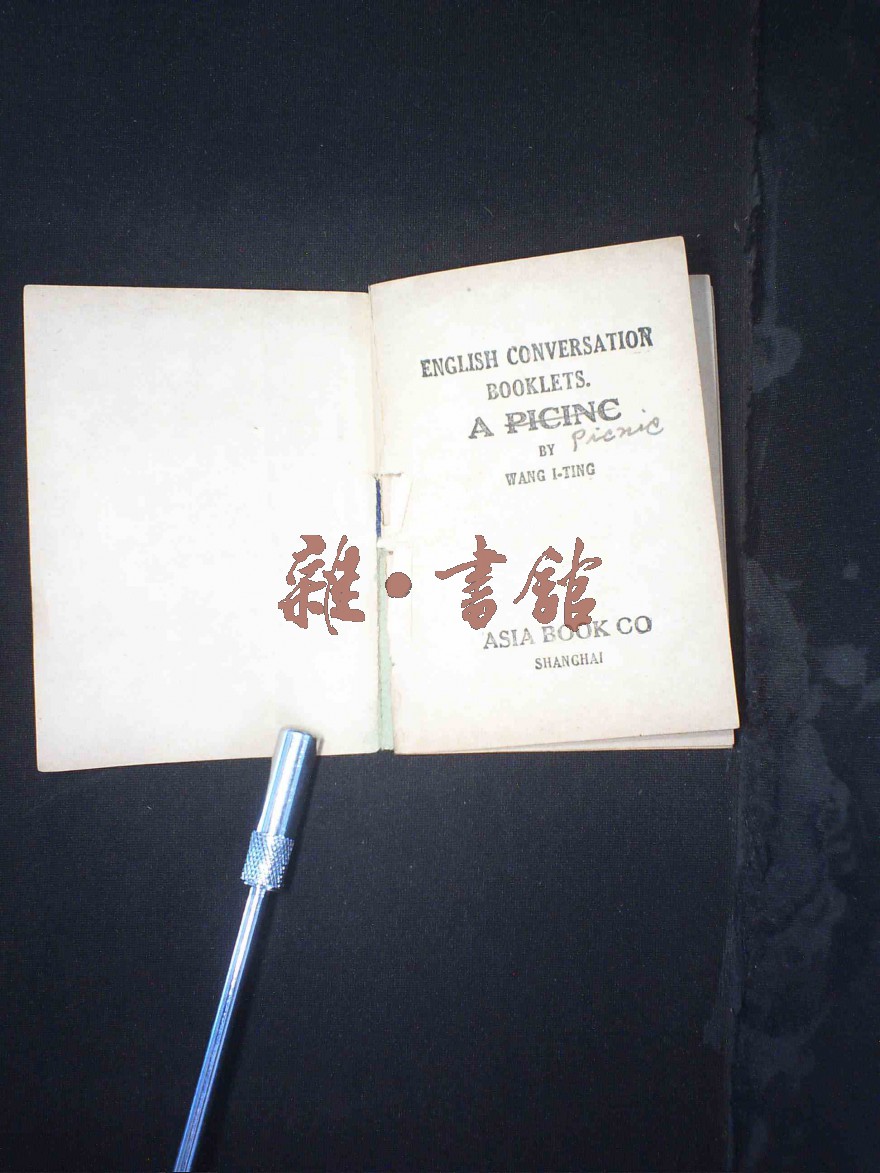 ENGLISH CONVERSATION
BOOKLETS.
A PICINC
Picnic
BY
WANG I-TING
雜·書館
ASIA BOOK CO
SHANGHAI